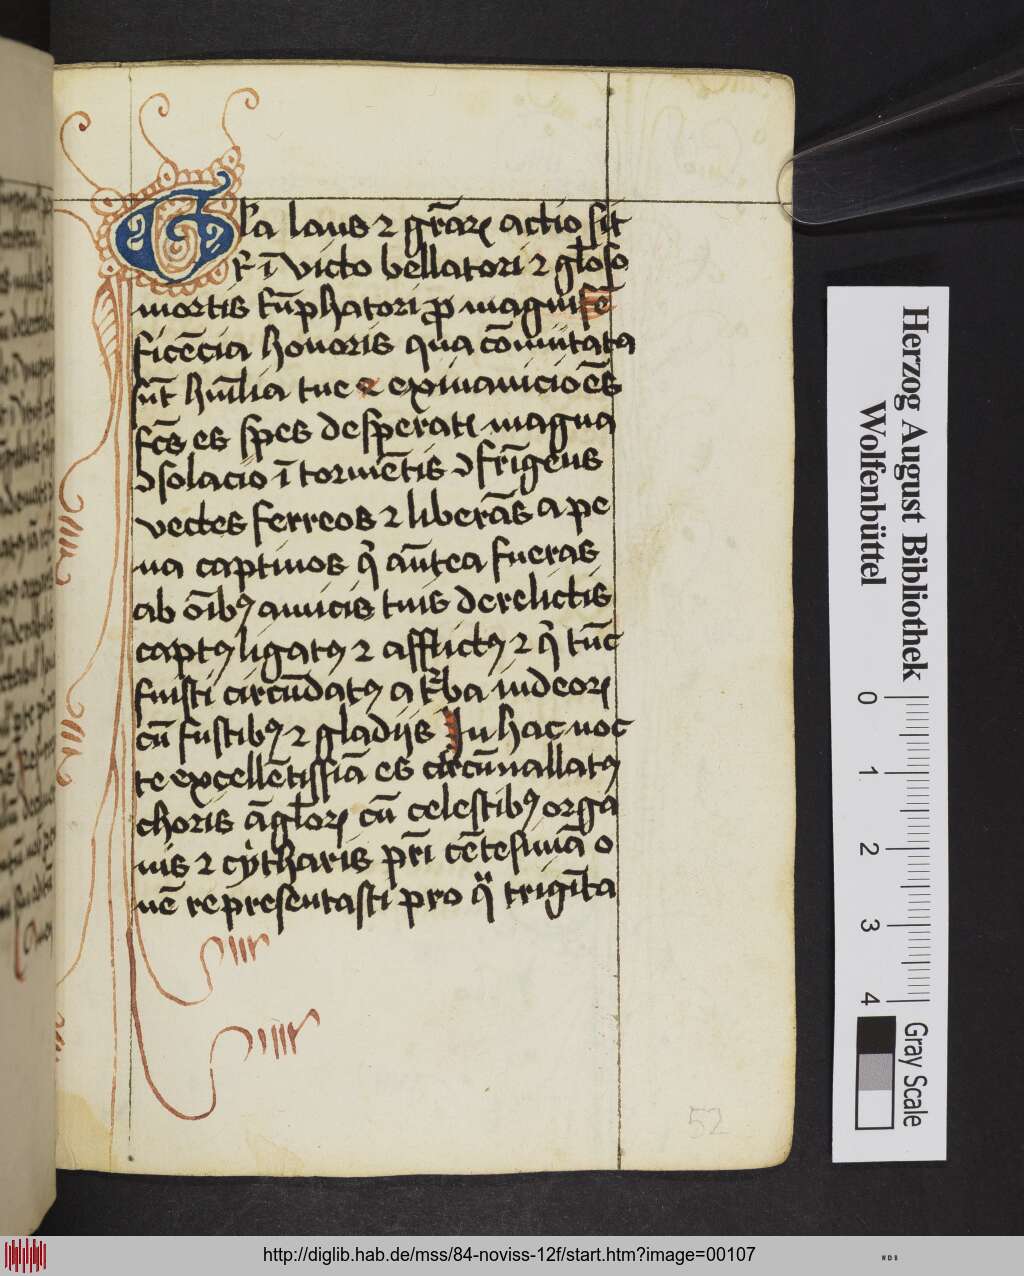 Gl'a laus ⁊ gr̄aꝝ actio sit
t' ī victo bellatori ⁊ gl'oso
mortis t'ūphatori ꝓ magnifē
ficēcia honoris qua cōmutata
sūt hūilia tue ⁊ exinanicio ēs
fcs̄ es spes desperati magna
ↄsolacio ī tormētis ↄfrīgens
vectes ferreos ⁊ liberās a pe
na captiuos q' an̄tea fueras
ab oīb9 amicis tuis derelictis
capt9 ligat9 ⁊ afflict9 ⁊ q' tūc
fuisti circūdat9 a t'ba iudeoꝝ
cū fustib9 ⁊ gladijs In hac noc
te excellētissīa es circūuallat9
choris āgl'oꝝ cū celestib9 orga
nis ⁊ cytharis pr̄i cētesimā o
nē representasti pro q̈ trigīta
52
Herzog August Bibliothek
Wolfenbüttel
0 1 2 3 4
Gray Scale
http://diglib.hab.de/mss/84-noviss-12f/start.htm?image=00107